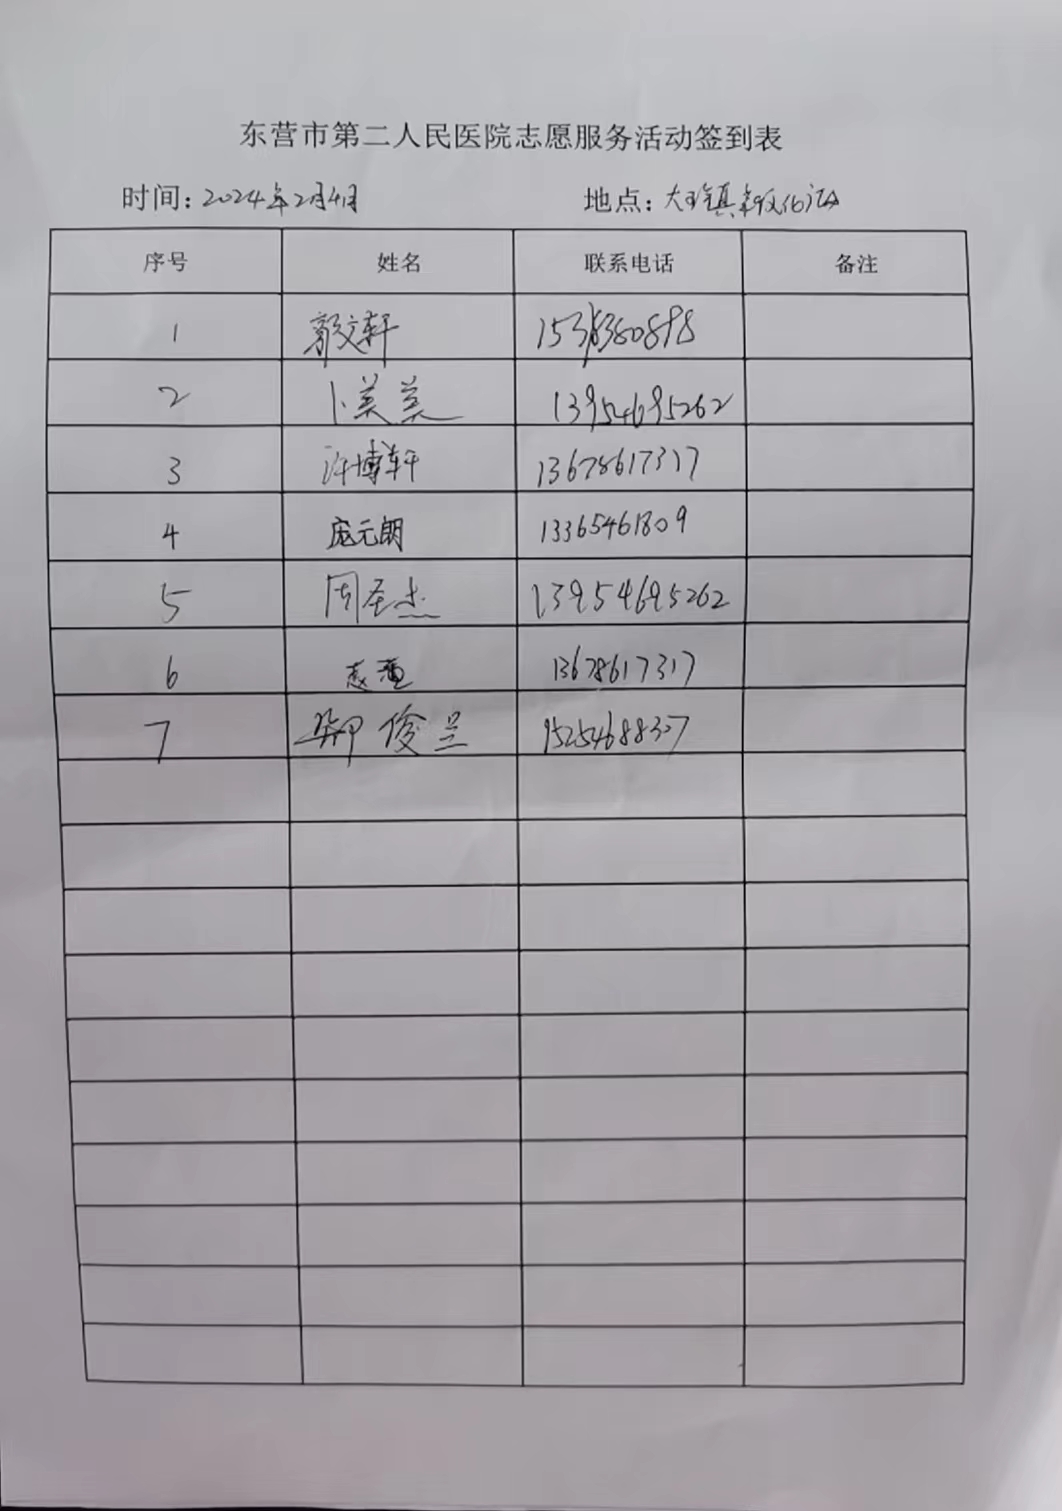 东营市第二人民医院志愿服务活动签到表
时间：2024年2月4日 地点：大王镇
序号 姓名 联系电话 备注
1 郭文轩
2 卜美美 13954695262
3 许博轩 13678617317
4 庞元朗 13365461809
5 周圣杰 13954695262
6 13678617317
7 俊兰